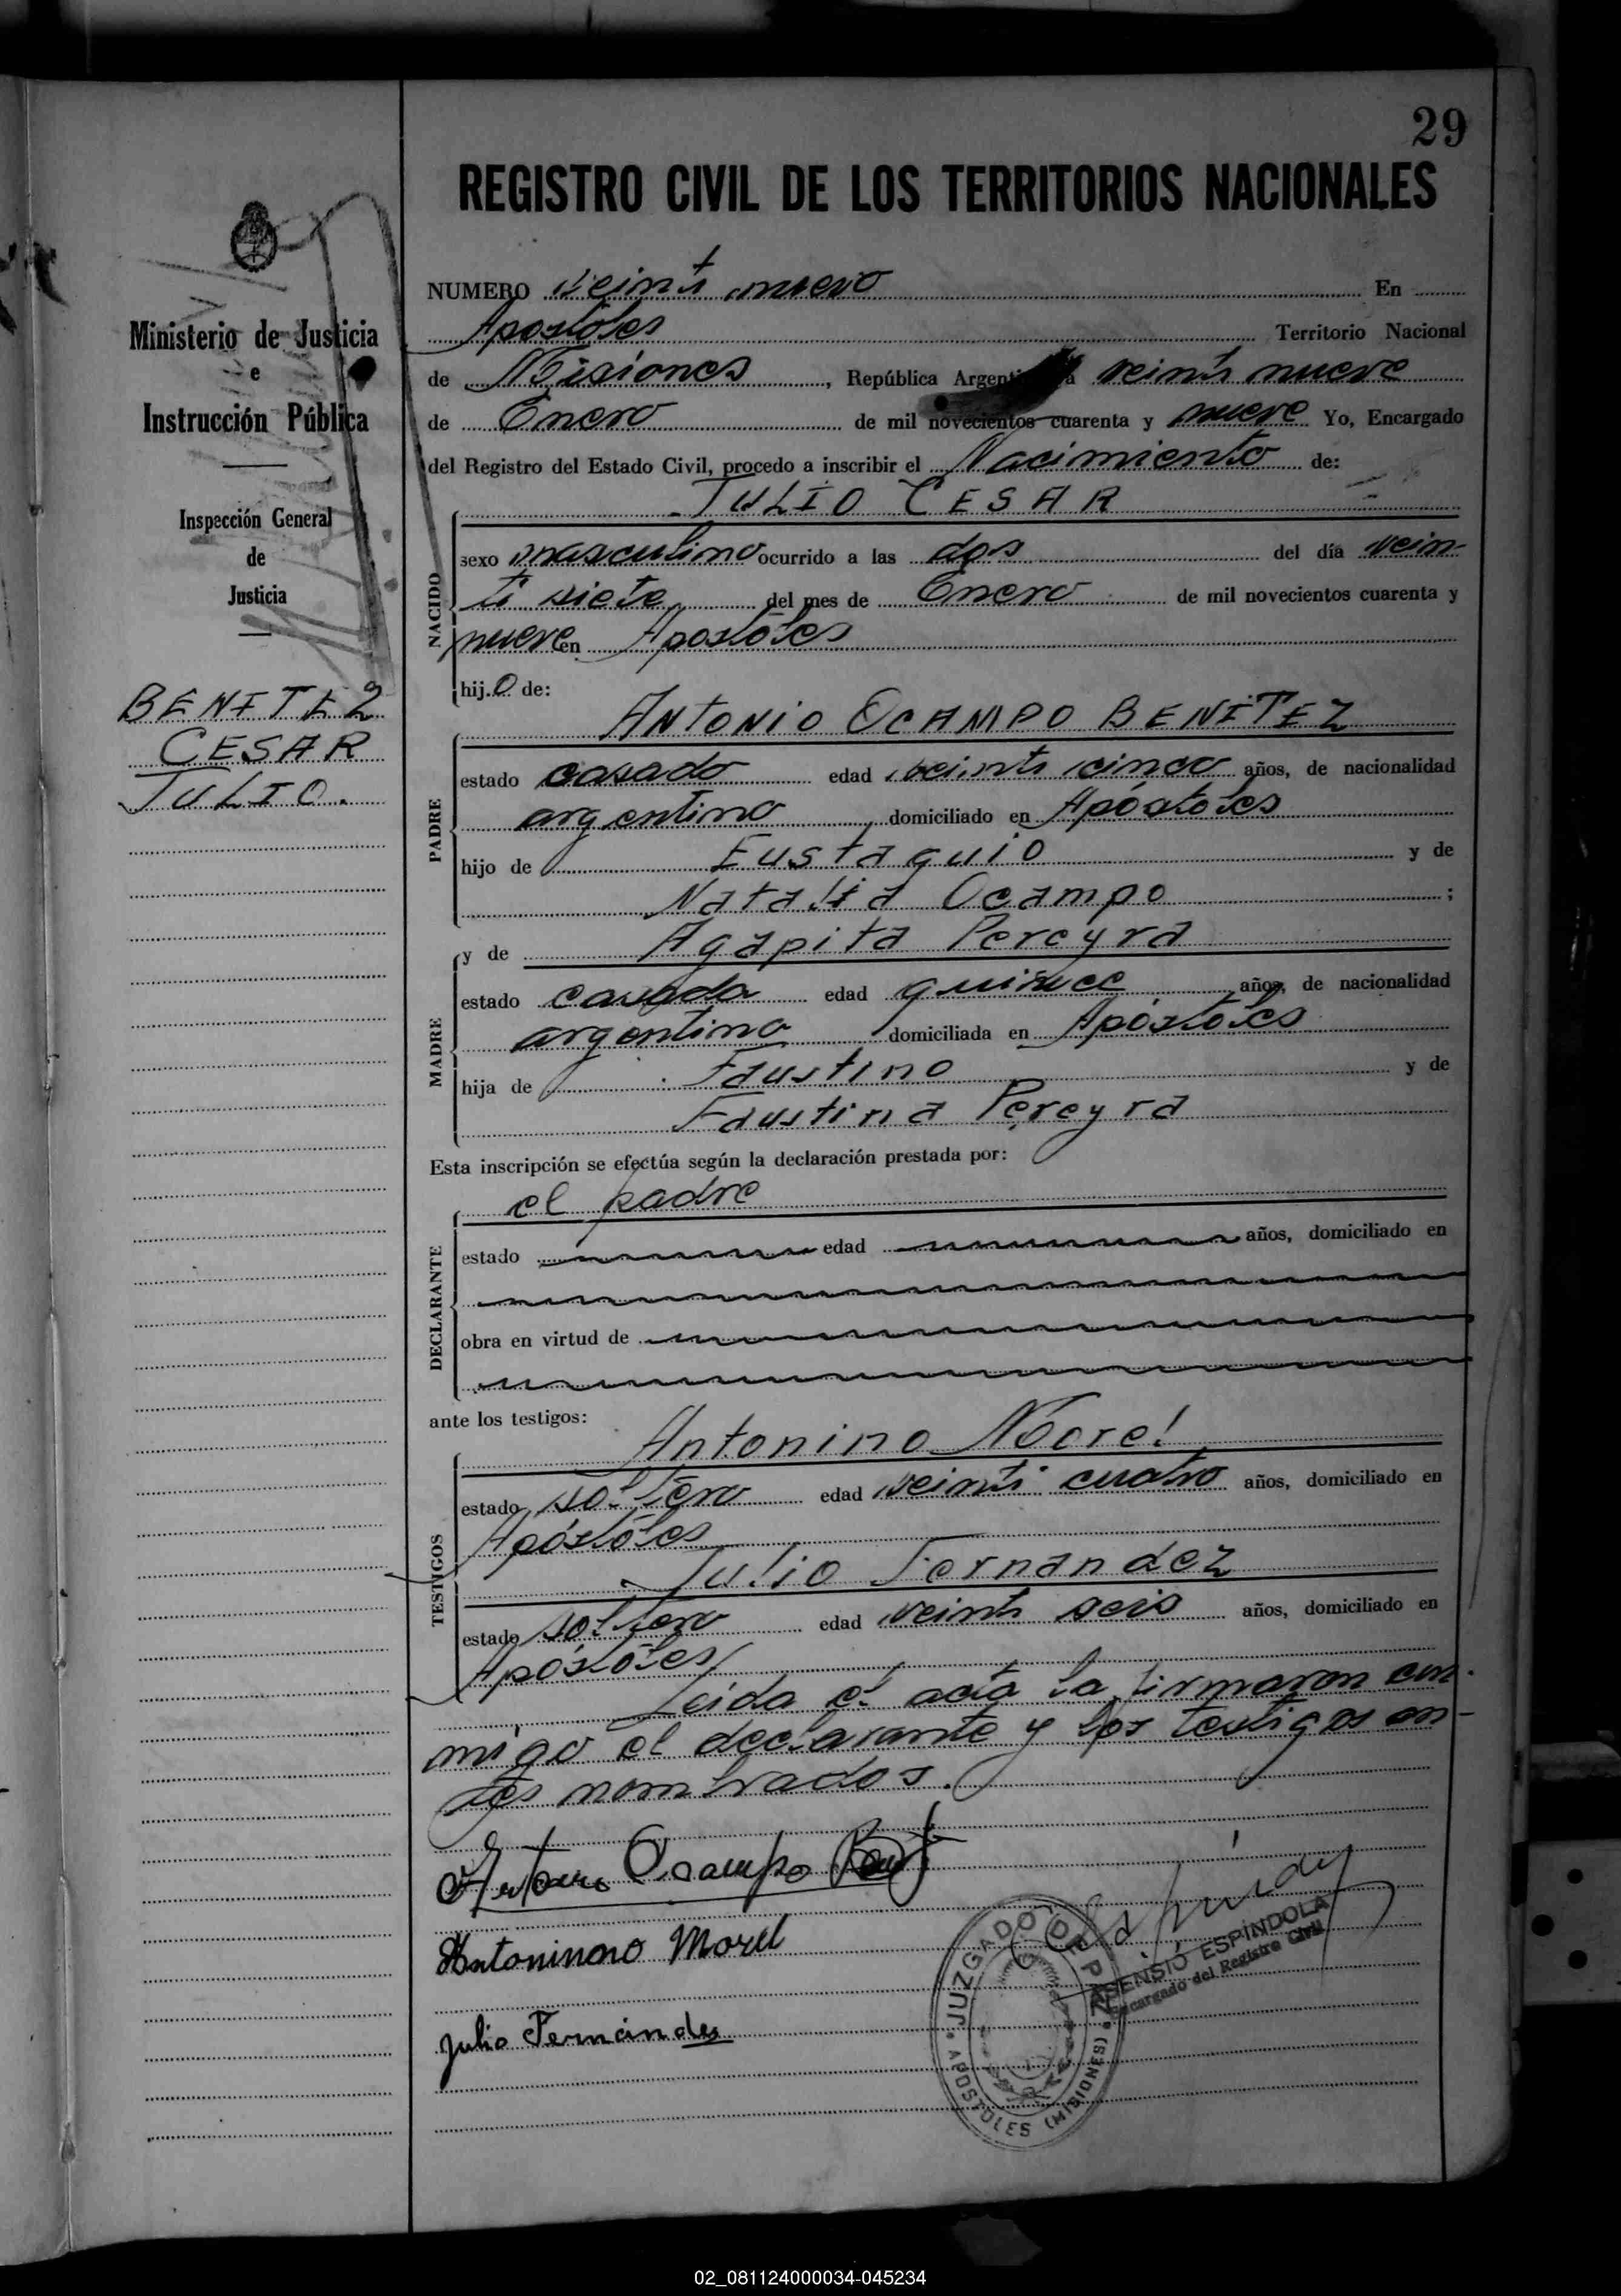 29
REGISTRO CIVIL DE LOS TERRITORIOS NACIONALES
Ministerio de Justicia
e
Instrucción Pública
Inspección General
de
Justicia
BENITEZ
CESAR
JULIO.
NUMERO veinti nueve En
Apostoles Territorio Nacional
de Misiones, República Argentina a veinti nueve
de Enero de mil novecientos cuarenta y nueve Yo, Encargado
del Registro del Estado Civil, procedo a inscribir el Nacimiento de:
JULIO CESAR
NACIDO
sexo masculino ocurrido a las dos del día vein-
ti siete del mes de Enero de mil novecientos cuarenta y
nueve en Apostoles
hijo de:
ANTONIO OCAMPO BENITEZ
PADRE
estado casado edad veinti cinco años, de nacionalidad
argentino domiciliado en Apóstoles
hijo de Eustaquio y de
Natalia Ocampo;
y de Agapita Pereyra
MADRE
estado casada edad quince años, de nacionalidad
argentina domiciliada en Apóstoles
hija de Faustino y de
Faustina Pereyra
Esta inscripción se efectúa según la declaración prestada por:
el padre
DECLARANTE
estado edad años, domiciliado en
obra en virtud de
ante los testigos:
Antonino Morel
TESTIGOS
estado soltero edad veinti cuatro años, domiciliado en
Apóstoles
Julio Fernandez
estado soltero edad veinti seis años, domiciliado en
Apóstoles
Leida el acta la firmaron con-
migo el declarante y los testigos an-
tes nombrados.
Ocampo
Antoninoro Morel
Julio Fernández
JUZGADO DE PAZ
APOSTOLES (MISIONES)
ASENSIO ESPINDOLA
Encargado del Registro Civil
02_081124000034-045234